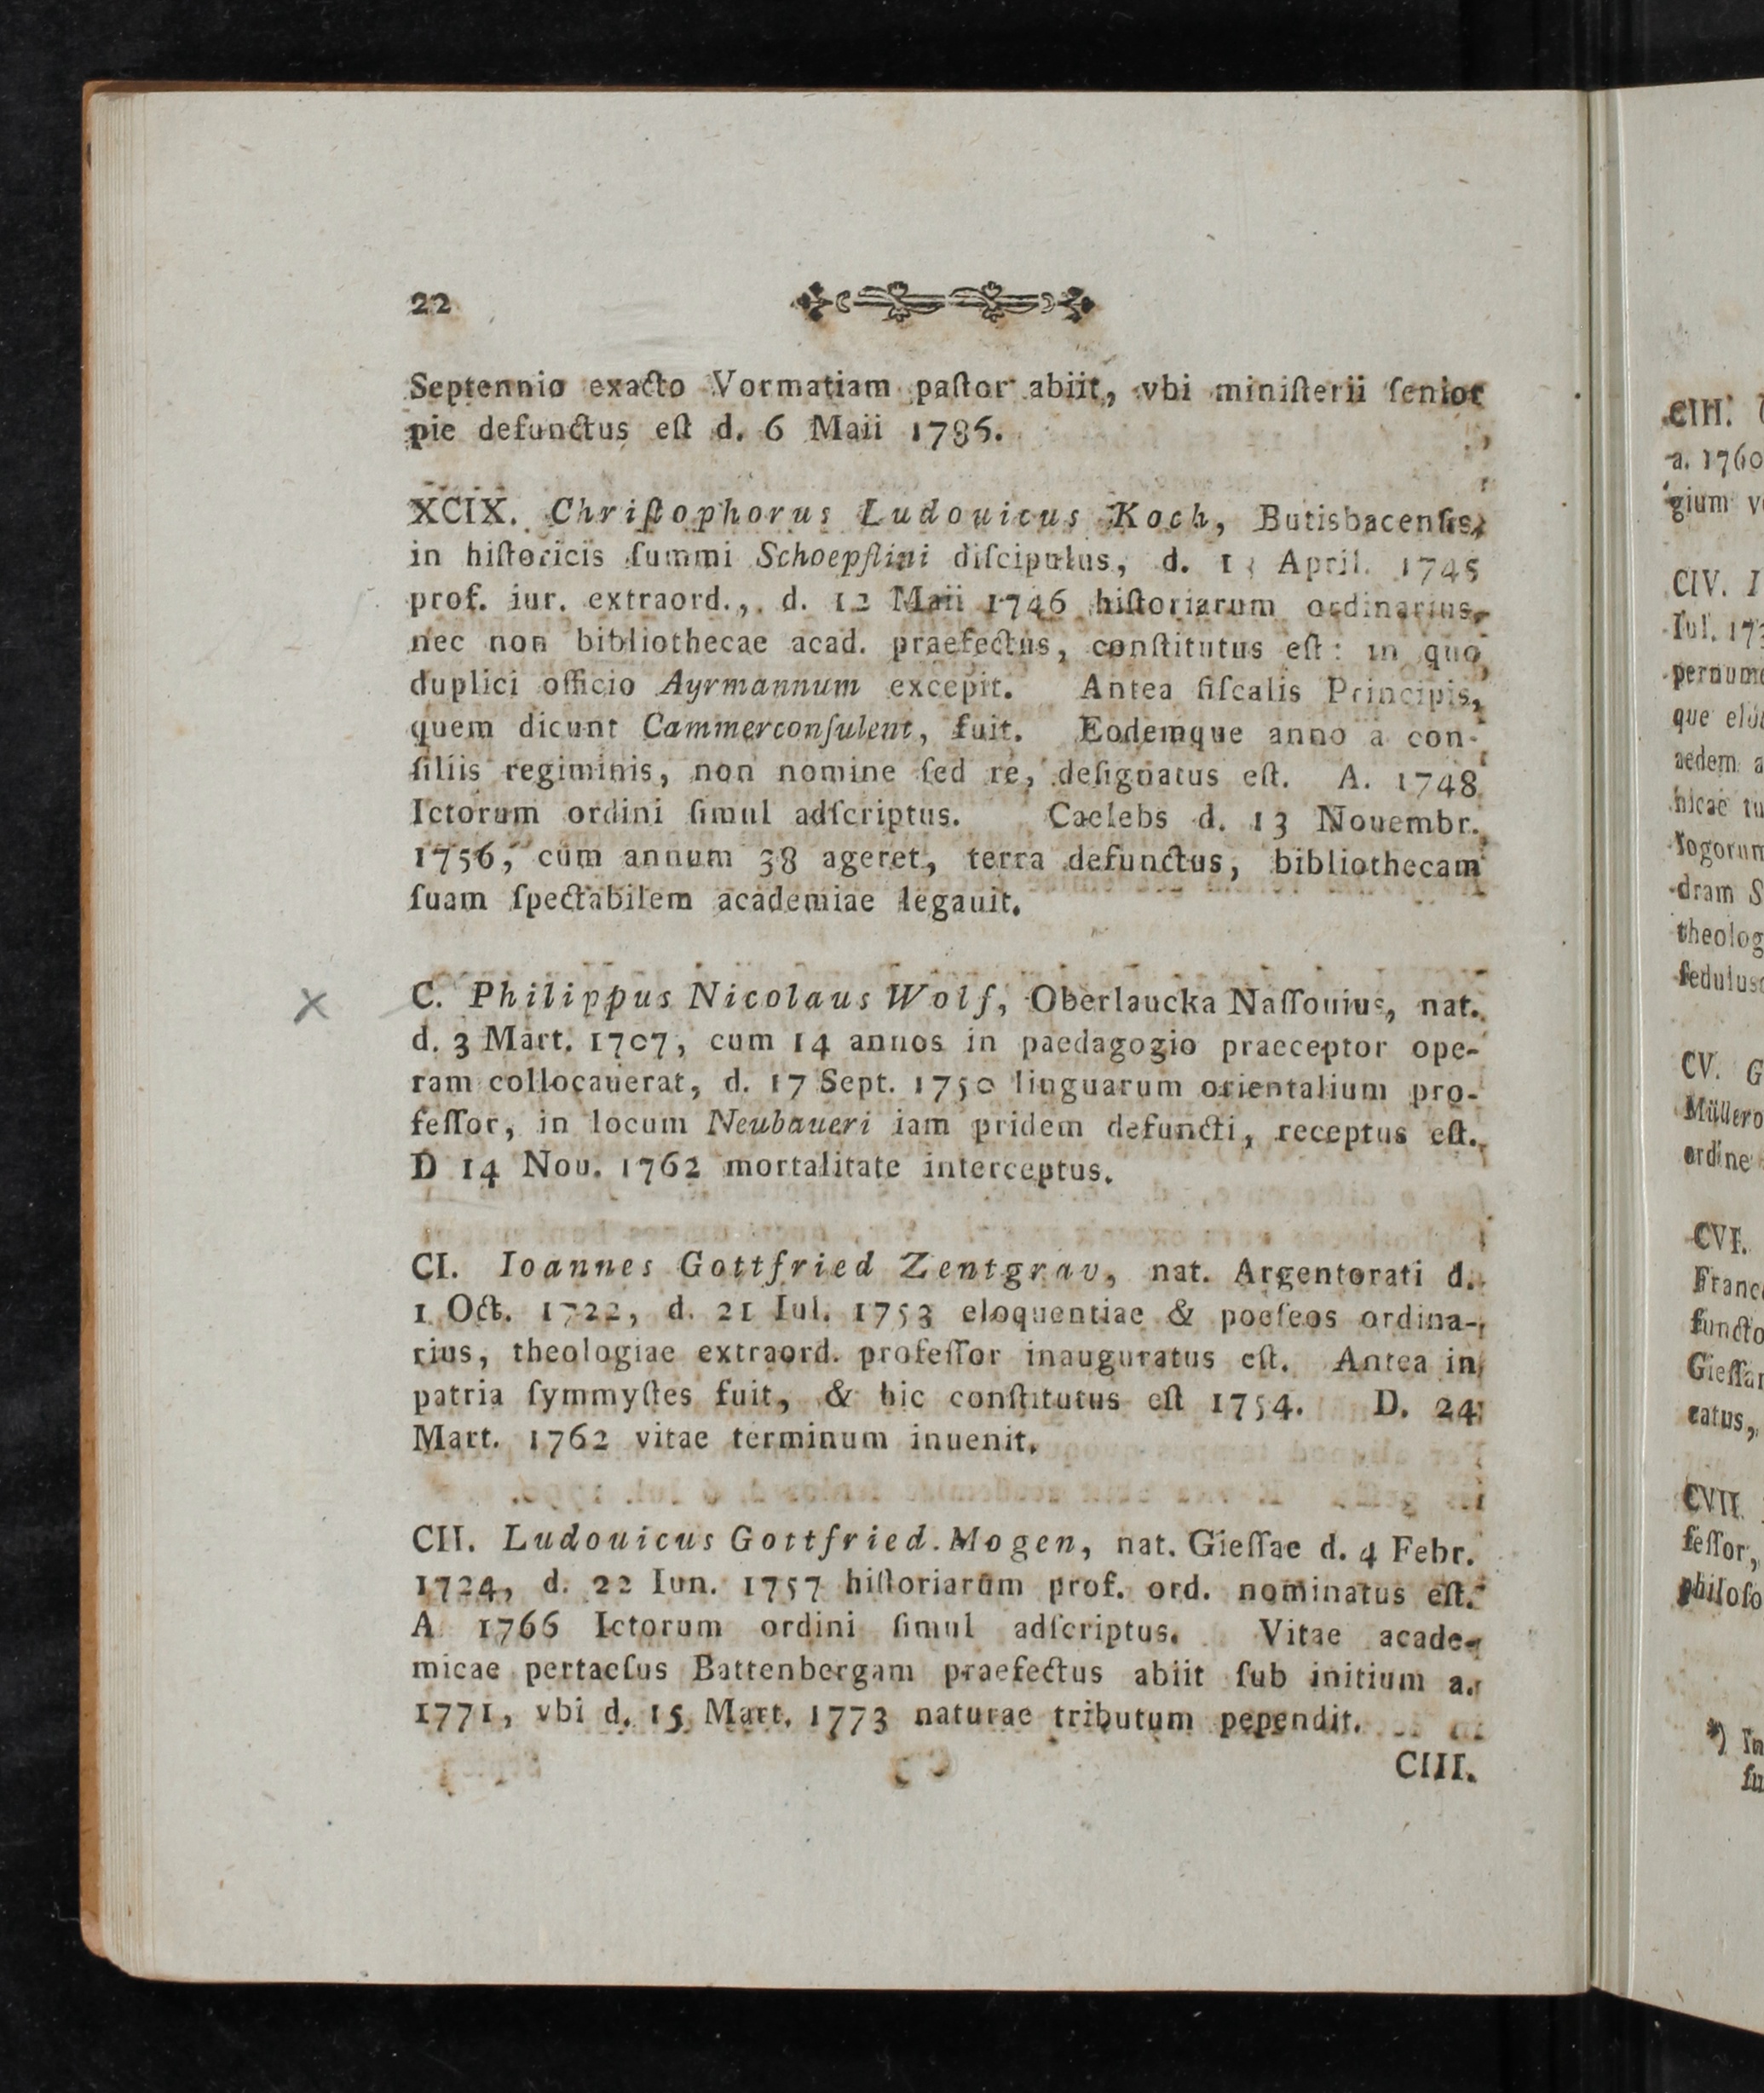 22
Septennio exacto Vormatiam paſtor abiit, vbi miniſterii ſenior
pie defunctus eſt d. 6 Maii 1786.
XCIX. Chriſtophorus Ludouicus Koch, Butisbacenſis,
in hiſtoricis ſummi Schoepflini diſcipulus, d. April. 1745
prof. iur. extraord., d. 12 Maii 1746 hiſtoriarum ordinarius,
nec non bibliothecae acad. praefectus, conſtitutus eſt: in quo
duplici officio Ayrmannum excepit. Antea fiſcalis Principis,
quem dicunt Cammerconſulent, fuit. Eodemque anno a con-
ſiliis regiminis, non nomine ſed re, deſignatus eſt. A. 1748
Ictorum ordini ſimul adſcriptus. Caelebs d. 13 Nouembr.
1756, cum annum 38 ageret, terra defunctus, bibliothecam
ſuam ſpectabilem academiae legauit.
C. Philippus Nicolaus Wolf, Oberlaucka Naſſouius, nat.
d. 3 Mart. 1707, cum 14 annos in paedagogio praeceptor ope-
ram collocauerat, d. 17 Sept. 1750 linguarum orientalium pro-
feſſor, in locum Neubaueri iam pridem defuncti, receptus eſt.
D 14 Nou. 1762 mortalitate interceptus.
CI. Ioannes Gottfried Zentgrav, nat. Argentorati d.
1 Oct. 1722, d. 21 Iul. 1753 eloquentiae & poeſeos ordina-
rius, theologiae extraord. profeſſor inauguratus eſt. Antea in
patria ſymmyſtes fuit, & hic conſtitutus eſt 1754. D. 24
Mart. 1762 vitae terminum inuenit.
CII. Ludouicus Gottfried Mogen, nat. Gieſſae d. 4 Febr.
1724, d. 22 Iun. 1757 hiſtoriarum prof. ord. nominatus eſt.
A 1766 Ictorum ordini ſimul adſcriptus. Vitae acade-
micae pertaeſus Battenbergam praefectus abiit ſub initium a.
1771, vbi d. 15 Mart. 1773 naturae tributum pependit.
CIII.
CIII.
a. 1760
gium
CIV. I
Iul.
que
aedem
dram S
theolog
CV. G
Müllero
ordine
CVI.
Franc
functo
Gieſſa
catus,
CVII.
feſſor,
philoſo
*) In